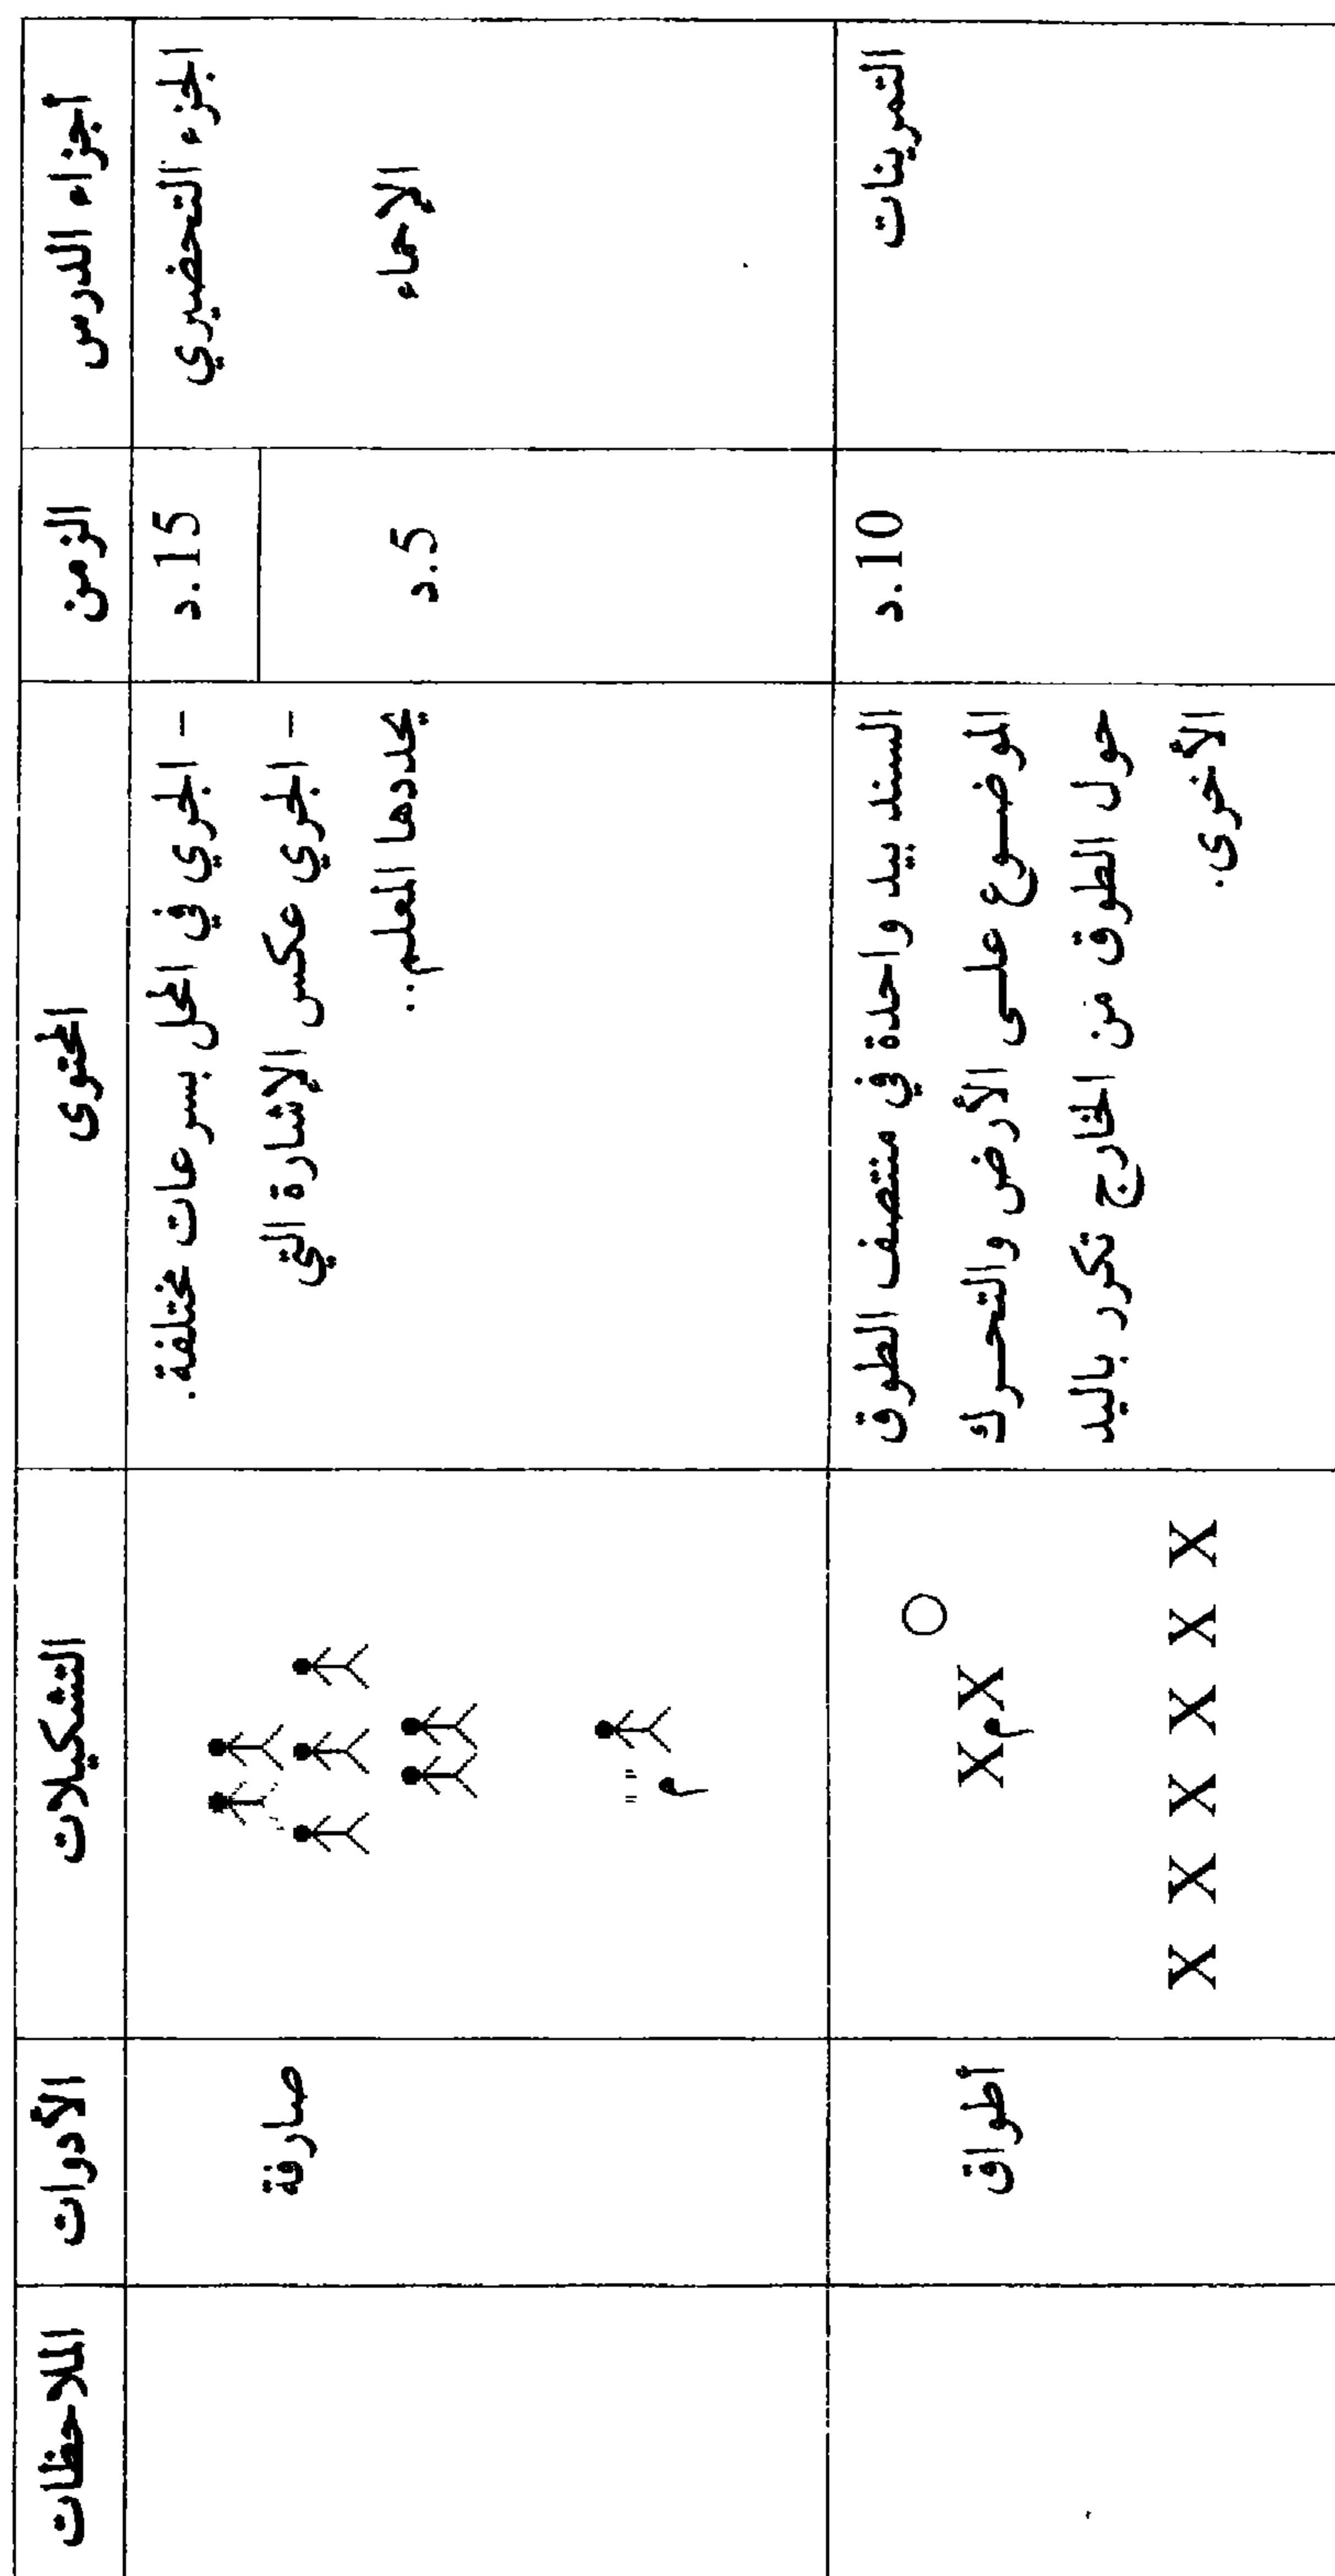 أجزاء الدرس
الزمن
المحتوى
التشكيلات
الأدوات
الملاحظات
الجزء التحضيري
15.د
- الجري في المحل بسرعات مختلفة.
الإحماء
5.د
- الجري عكس الإشارة التي
يحددها المعلم..
" "
م
صارفة
التمرينات
10.د
السند بيد واحدة في منتصف الطوق
الموضوع على الأرض والتحرك
حول الطوق من الخارج تكرر باليد
الأخرى.
XمX
X X X X X X
أطواق